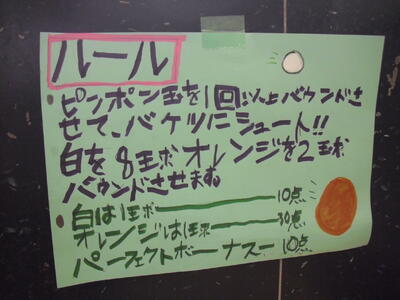 ルール
ピンポン玉を1回以上バウンドさ
せて、バケツにシュート!!
白を8玉
オレンジを2玉
バウンドさせます。
白は1玉 10点
オレンジは1玉 30点
パーフェクトボーナス 10点